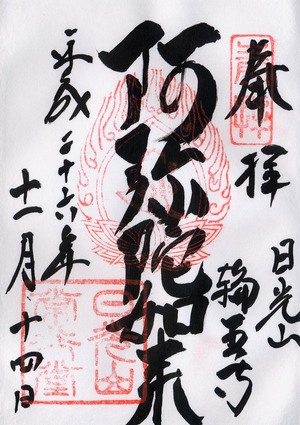 奉拝
日光山
輪王寺
阿弥陀如来
平成二十六年
十一月十四日
日光山
常行堂